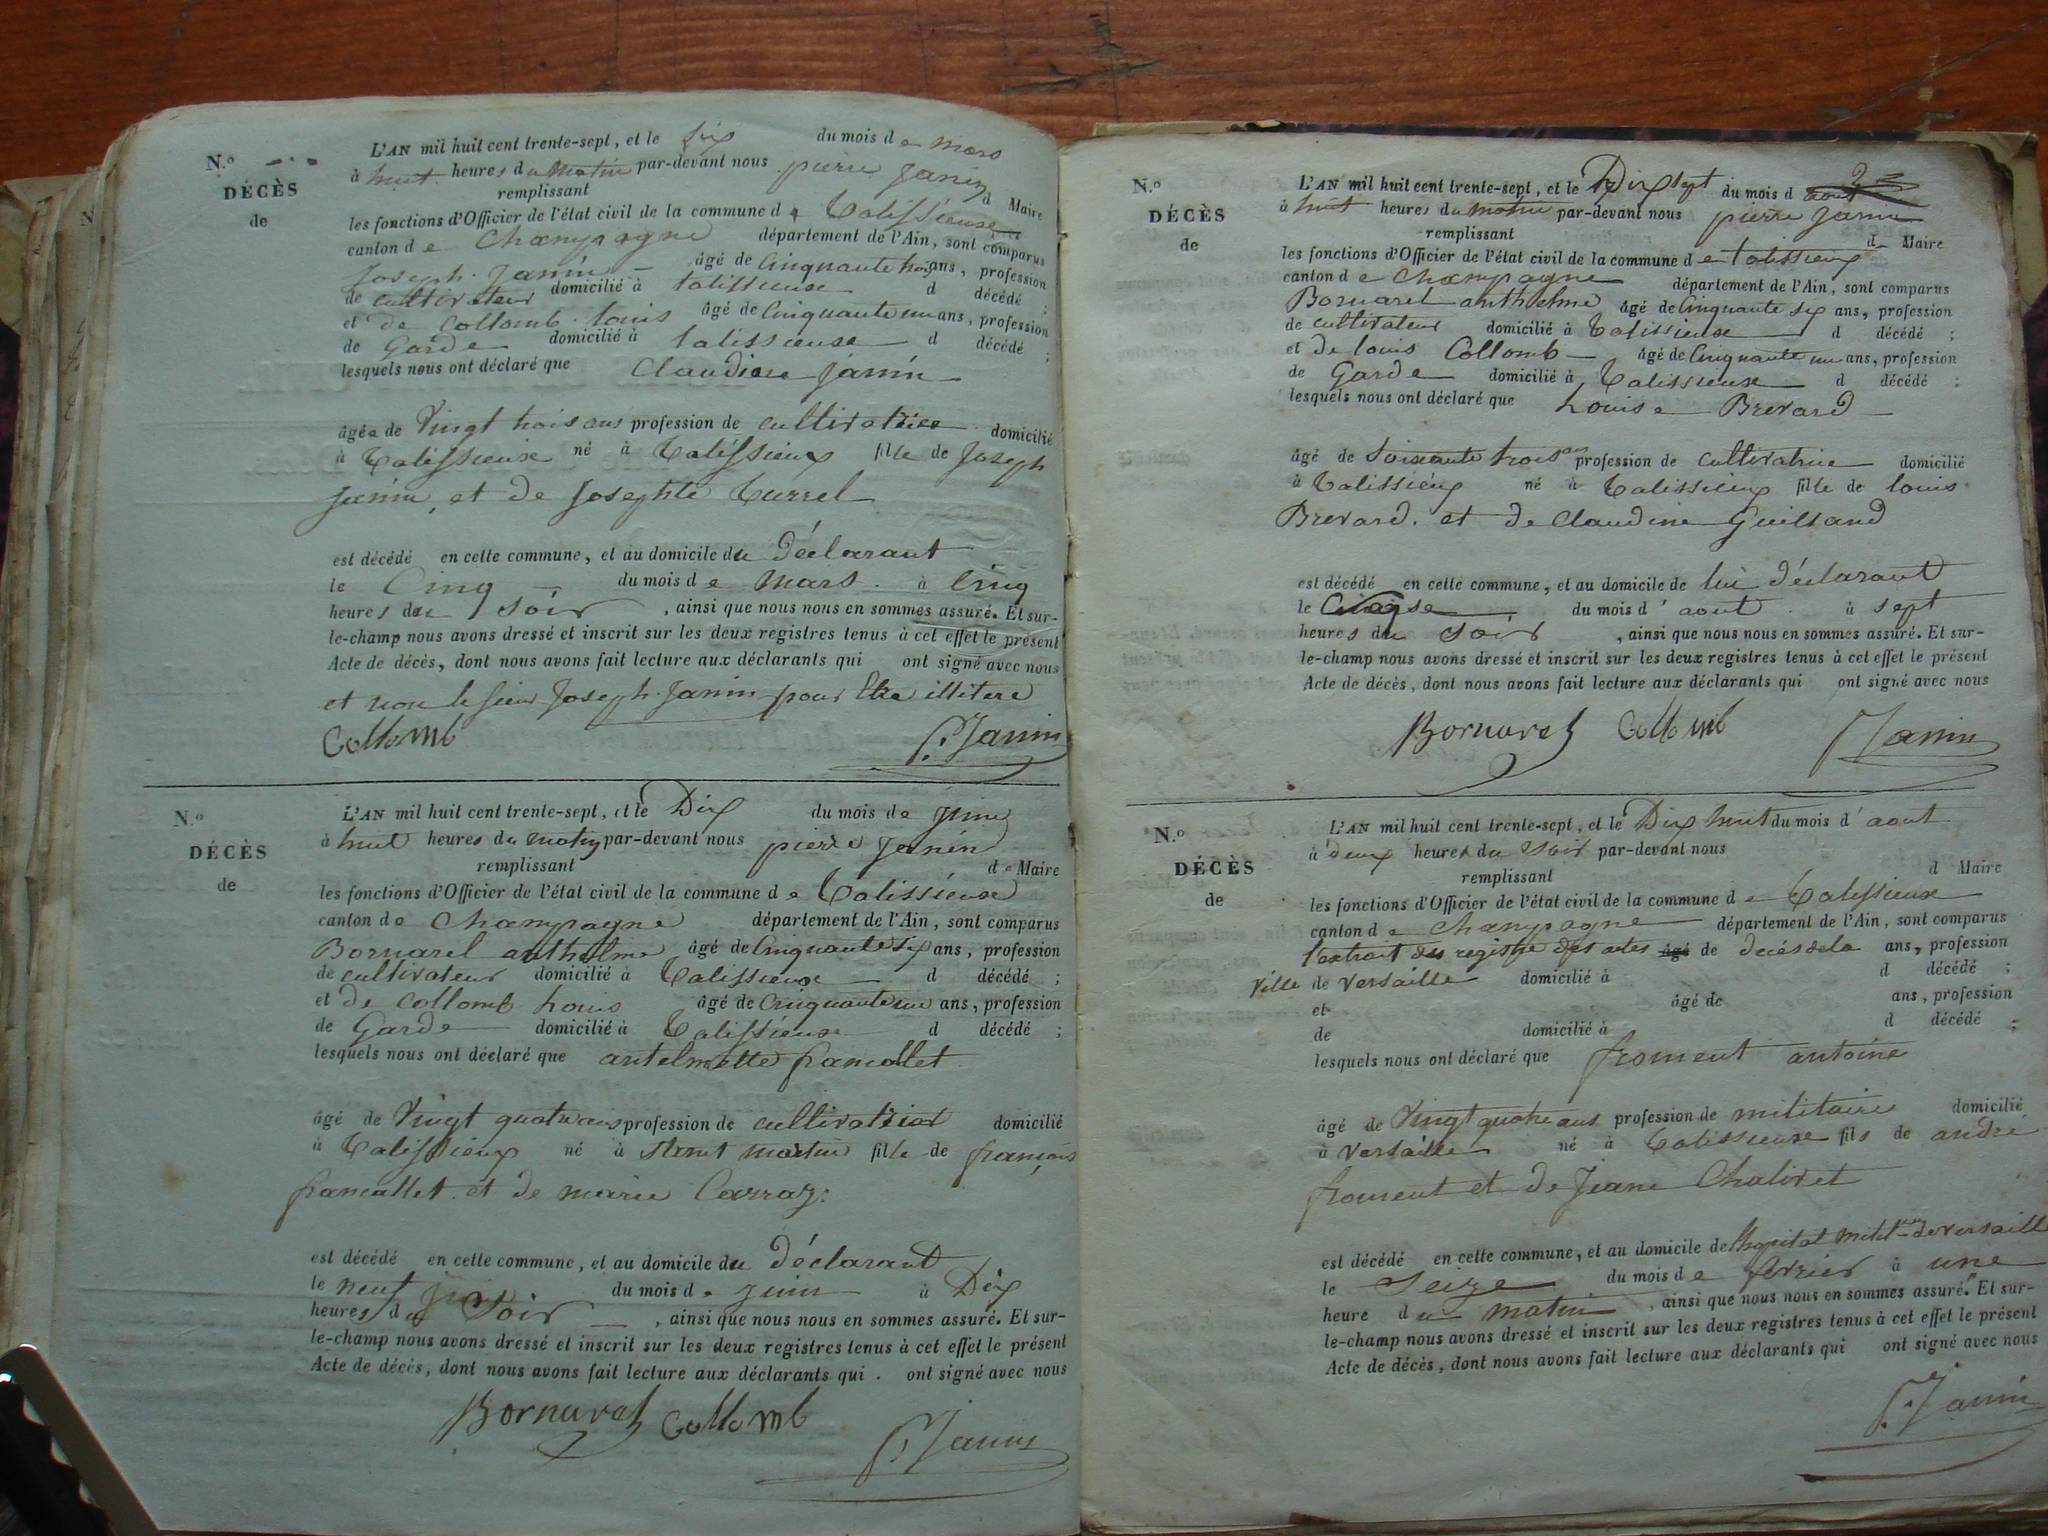 N.o
DÉCÈS
de
L'AN mil huit cent trente-sept, et le Six du mois de mars
à huit heures du matin par-devant nous pierre Janin
remplissant d Maire
les fonctions d'Officier de l'état civil de la commune de Talissieuse
canton de Champagne département de l'Ain, sont comparus
Joseph Janin âgé de Cinquante trois ans, profession
de cultivateur domicilié à talissieuse d décédé ;
et de Collomb louis âgé de Cinquante un ans, profession
de Garde domicilié à talissieuse d décédé ;
lesquels nous ont déclaré que Claudine Janin
âgée de Vingt trois ans profession de cultivatrice domicilié
à Talissieuse né à Talissieux fille de Joseph
Janin, et de Josephte Turrel
est décédé en cette commune, et au domicile du Déclarant
le Cinq du mois de mars à Cinq
heures du Soir, ainsi que nous nous en sommes assuré. Et sur-
le-champ nous avons dressé et inscrit sur les deux registres tenus à cet effet le présent
Acte de décès, dont nous avons fait lecture aux déclarants qui ont signé avec nous
et non le sieur Joseph Janin pour être illitere
Collomb P. Janin
N.o
DÉCÈS
de
L'AN mil huit cent trente-sept, et le Dix du mois de Juin
à huit heures du matin par-devant nous pierre Janin
remplissant de Maire
les fonctions d'Officier de l'état civil de la commune de Talissieuse
canton de Champagne département de l'Ain, sont comparus
Bornarel anthelme âgé de Cinquante Six ans, profession
de cultivateur domicilié à Talissieuse d décédé ;
et de Collomb Louis âgé de Cinquante un ans, profession
de Garde domicilié à Talissieuse d décédé ;
lesquels nous ont déclaré que antelmette francallet
âgé de Vingt quatre ans profession de cultivatrice domicilié
à Talissieux né à Saint martin fille de françois
francallet et de marie Carraz.
est décédé en cette commune, et au domicile du Déclarant
le neuf du mois de Juin à Dix
heures du Soir, ainsi que nous nous en sommes assuré. Et sur-
le-champ nous avons dressé et inscrit sur les deux registres tenus à cet effet le présent
Acte de décès, dont nous avons fait lecture aux déclarants qui. ont signé avec nous
Bornarel Collomb P. Janin
N.o
DÉCÈS
de
L'AN mil huit cent trente-sept, et le Dix Sept du mois d'aout
à huit heures du matin par-devant nous pierre Janin
remplissant de Maire
les fonctions d'Officier de l'état civil de la commune de talissieux
canton de Champagne département de l'Ain, sont comparus
Bornarel anthelme âgé de Cinquante six ans, profession
de cultivateur domicilié à Talissieuse d décédé ;
et de louis Collomb âgé de Cinquante un ans, profession
de Garde domicilié à Talissieuse d décédé ;
lesquels nous ont déclaré que Louise Brevard
âgé de Soixante trois ans profession de cultivatrice domicilié
à Talissieux né à Talissieux fille de louis
Brevard. et de Claudine Guilland
est décédé en cette commune, et au domicile de lui déclarant
le du mois d'aout à sept
heures du Soir, ainsi que nous nous en sommes assuré. Et sur-
le-champ nous avons dressé et inscrit sur les deux registres tenus à cet effet le présent
Acte de décès, dont nous avons fait lecture aux déclarants qui ont signé avec nous
Bornarel Collomb P Janin
N.o
DÉCÈS
de
L'AN mil huit cent trente-sept, et le Dix huit du mois d'aout
à deux heures du Soir par-devant nous
remplissant d Maire
les fonctions d'Officier de l'état civil de la commune de Talissieuse
canton de Champagne département de l'Ain, sont comparus
l'extrait des registre des actes âgé de decés de la ans, profession
ville de versaille domicilié à d décédé ;
et âgé de ans, profession
de domicilié à d décédé ;
lesquels nous ont déclaré que froment antoine
âgé de Vingt quatre ans profession de militaire domicilié
à versaille né à Talissieuse fils de andré
froment et de Jeane Chalivet
est décédé en cette commune, et au domicile de l'hopital milit.re de versaille
le Seize du mois de fevrier à une
heure du matin, ainsi que nous nous en sommes assuré. Et sur-
le-champ nous avons dressé et inscrit sur les deux registres tenus à cet effet le présent
Acte de décès, dont nous avons fait lecture aux déclarants qui ont signé avec nous
P. Janin